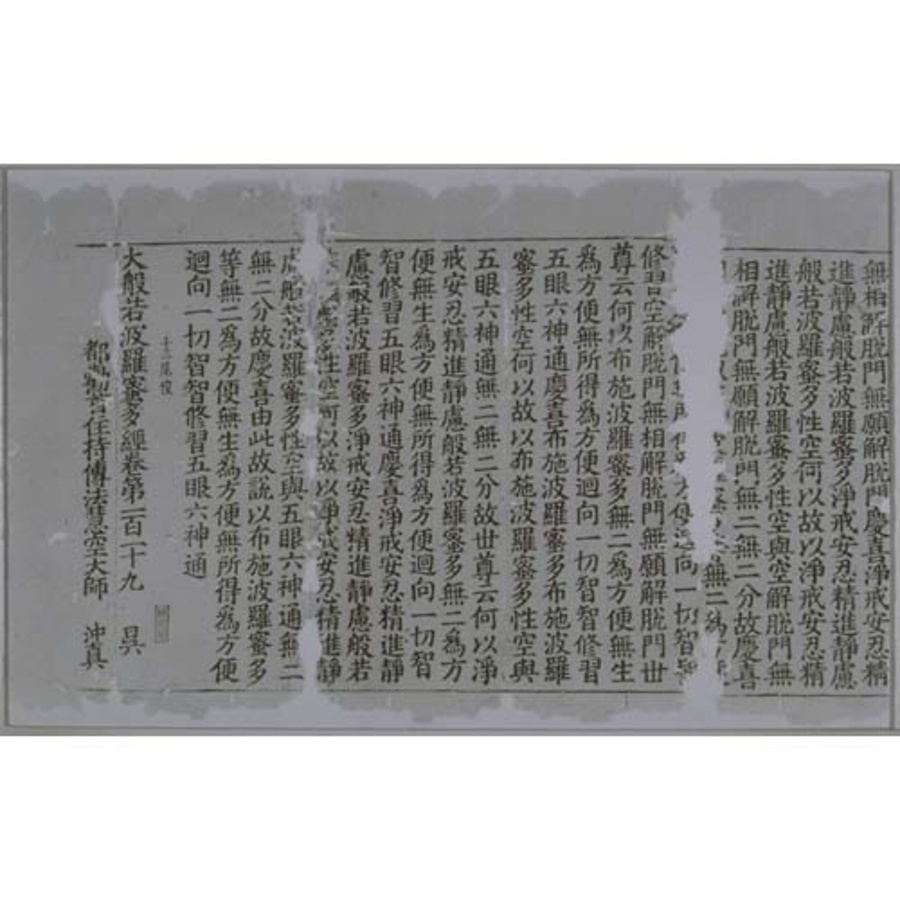 無相解脫門無願解脫門慶喜淨戒安忍精
進靜慮般若波羅蜜多淨戒安忍精進靜慮
般若波羅蜜多性空何以故以淨戒安忍精
進靜慮般若波羅蜜多性空與空解脫門無
相解脫門無願解脫門無二無二分故慶喜
無二爲方便
迴向一切智智
修習空解脫門無相解脫門無願解脫門世
尊云何以布施波羅蜜多無二爲方便無生
爲方便無所得爲方便迴向一切智智修習
五眼六神通慶喜布施波羅蜜多布施波羅
蜜多性空何以故以布施波羅蜜多性空與
五眼六神通無二無二分故世尊云何以淨
戒安忍精進靜慮般若波羅蜜多無二爲方
便無生爲方便無所得爲方便迴向一切智
智修習五眼六神通慶喜淨戒安忍精進靜
慮般若波羅蜜多淨戒安忍精進靜慮般若
羅蜜多性空何以故以淨戒安忍精進靜
慮般若波羅蜜多性空與五眼六神通無二
無二分故慶喜由此故說以布施波羅蜜多
等無二爲方便無生爲方便無所得爲方便
迴向一切智智修習五眼六神通
大般若波羅蜜多經卷第一百二十九 昃
都勸首住持傳法慧空大師 沖真